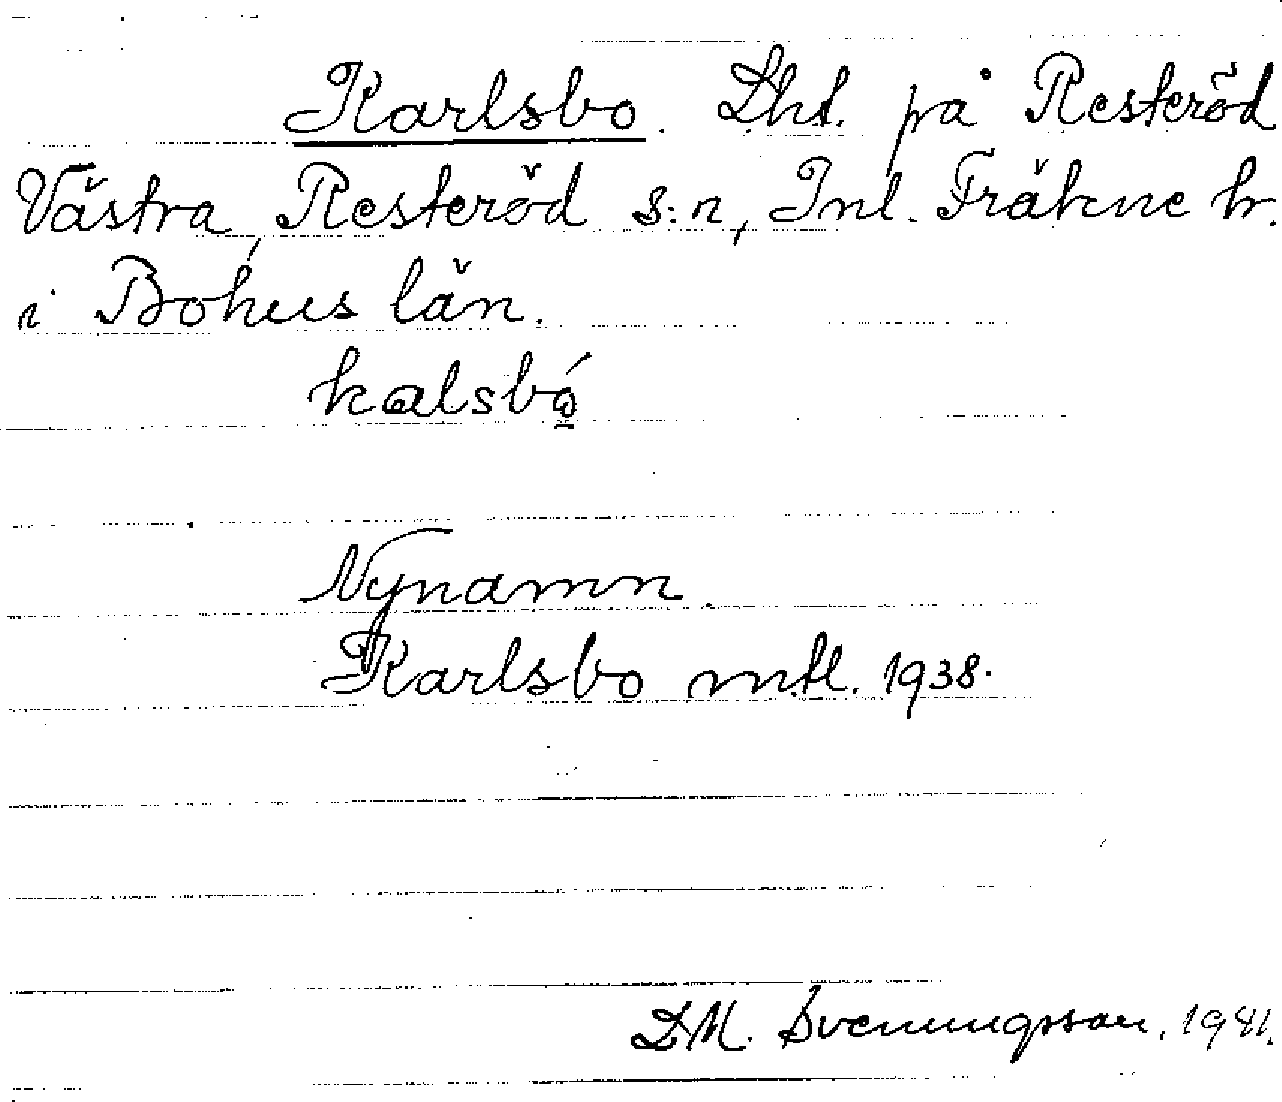 Karlsbo. Lht. på Resteröd
Västra, Resteröd s:n, Inl. Fräkne hr.
i Bohus län.
kalsbó̲
Nynamn
Karlsbo mtl. 1938.
D.M. Svenungsson. 1941.